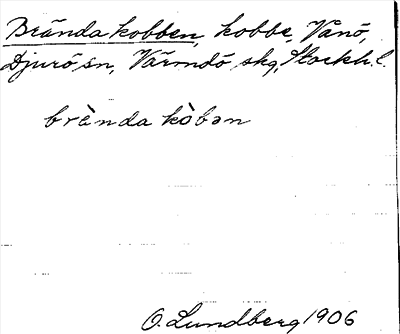 Brända kobben, kobbe, Vånö,
Djurö sn, Värmdö skg, Stockh. l.
brànda kòbən
O. Lundberg 1906